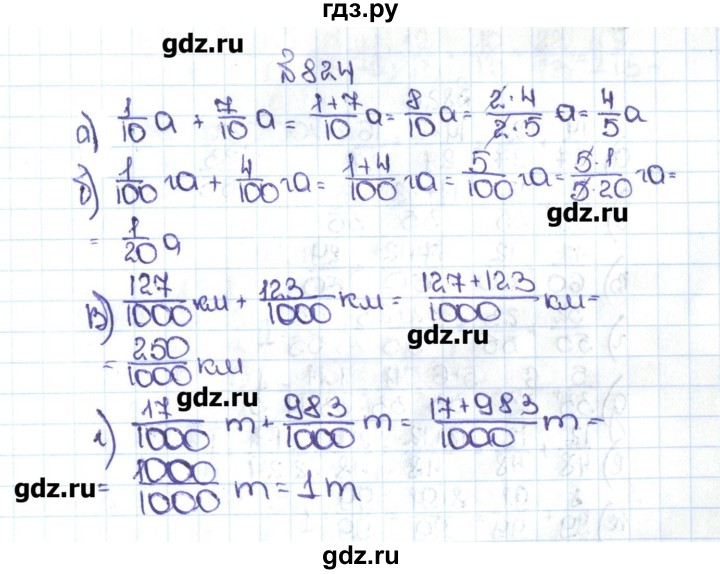 гдз.ру
gdz.ru
№824
а) 1/10 а + 7/10 а = 1+7/10 а = 8/10 а = 2·4/2·5 а = 4/5 а
б) 1/100 га + 4/100 га = 1+4/100 га = 5/100 га = 5·1/5·20 га =
gdz.ru
= 1/20 а
в) 127/1000 км + 123/1000 км = 127+123/1000 км =
gdz.ru
= 250/1000 км
gdz.ru
г) 17/1000 т + 983/1000 т = 17+983/1000 т =
gdz.ru
= 1000/1000 т = 1 т
gdz.ru